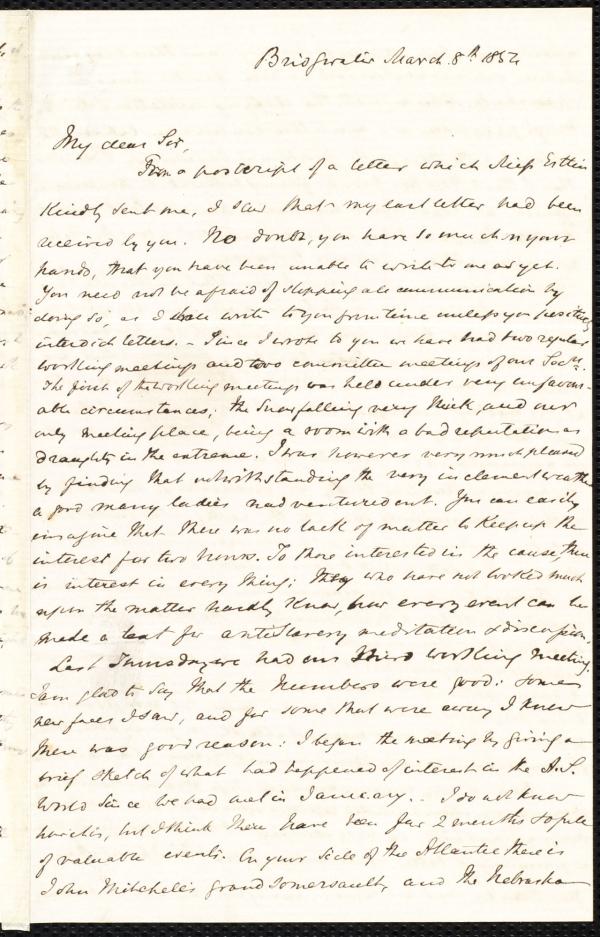 Bridgwater March 8th 1854
My dear Sir,
From a postscript of a letter which Miss Estlin
kindly sent me, I saw that my last letter had been
received by you. No doubt, you have so much on your
hands, that you have been unable to write to me as yet.
You need not be afraid of stopping all communication by
doing so, as I shall write to you from time unless you positively
interdict letters. - Since I wrote to you we have had two regular
working meetings and two committee meetings of our Socy.
The first of the working meetings was held under very unfavour-
able circumstances; the snow falling very thick, and our
only meeting place, being a room with a bad reputation as
draughty in the extreme. I was however very much pleased
by finding that notwithstanding the very inclement weather
a good many ladies had ventured out. You can easily
imagine that there was no lack of matter to keep up the
interest for two hours. To those interested in the cause, there
is interest in every thing; they who have not looked much
upon the matter hardly know, how every event can be
made a text for antislavery meditation & discussion.
Last Thursday we had our third working meeting.
I am glad to say that the numbers were good: some
new faces I saw, and for some that were away I knew
there was good reason: I began the meeting by giving a
brief sketch of what had happened of interest in the A.S.
World since we had met in January. - I do not know
how it is, but I think there have been few 2 months so full
of valuable events. On your side of the Atlantic there is
John Mitchell's grand somersault, and the Nebraska